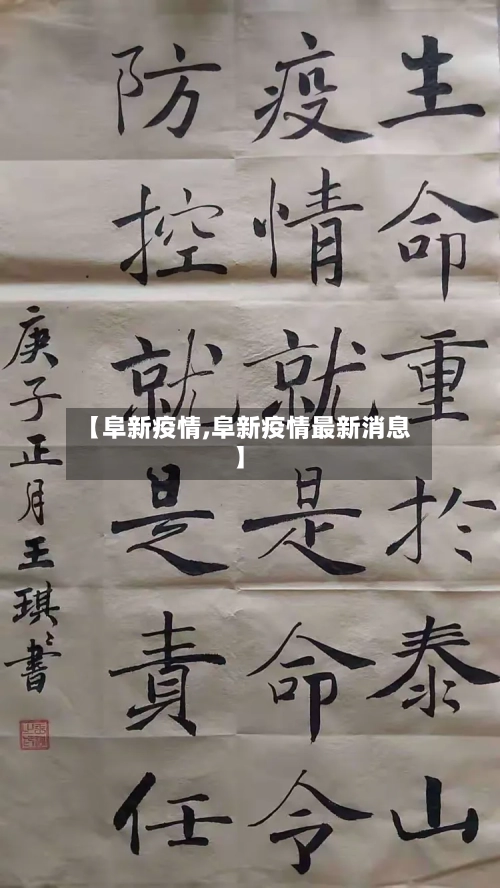 生命重於泰山
疫情就是命令
防控就是责任
庚子正月王琪书
【阜新疫情,阜新疫情最新消息
】